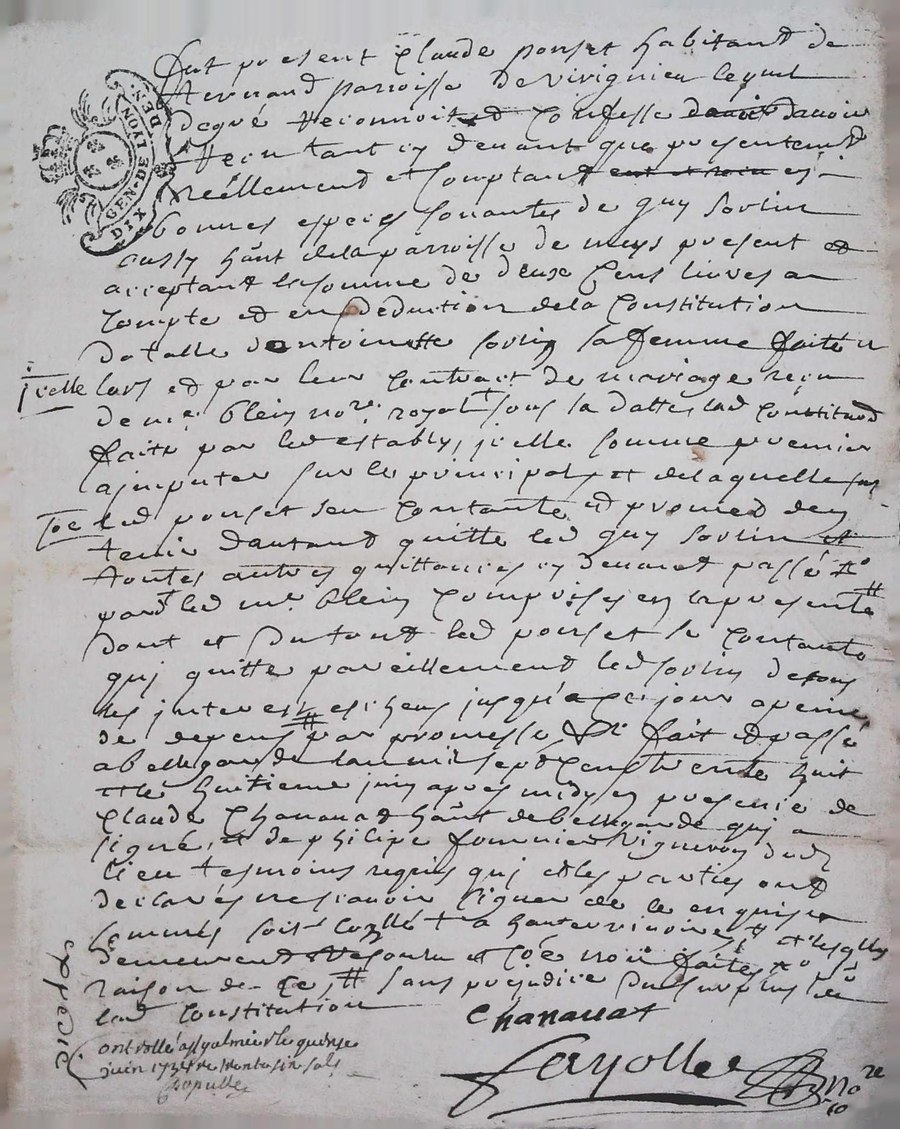 GEN. DE LYON
DIX DEN.
Fut present Claude ponset habitant de
parroisse de virignieu lequel
degré reconnoit et Confesse davoir
Receu tant cy devant que presentement
reéllement et Comptant en
bonnes especes sonantes de guy sorlin
aussy hânt dela parroisse de meys present et
acceptant la somme de deux Cens livres a
Compte et en Deduction dela Constitution
dotalle dantoinette sorlin sa femme faitte
icelle lors et par leur Contract de mariage receu
de me. blein nore. royal sous sa datte lad Constitution
faite par led estably, icelle somme premier
a imputer sur le principal et delaquelle
led ponset sen Contante et promet den
tenir dautant quitte led guy sorlin et
toutes autres quittances cy devant passé
pard led me blein Comprises en la presente
dont et du tout led ponset se Contante
qui quitte pareillement led sorlin de tous
les interest escheus jusqu'a Ce jour a peine
de depens par promesse & fait et passé
a bellegarde lan mil sept Cens trente huit
et le huitieme juin apres midy en presence de
Claude Chanavat hânt de bellegarde qui a
signé, et de philipe fournier vigneron dud
lieu tesmoins requis qui et les parties ont
declarés ne scavoir signer de ce enquis et
sommés
raison de Ce sans prejudice du surplus de
lad Constitution
Chanavat
Controllé a St galmier le quinze
juin 1738 re
Fayolle
nore